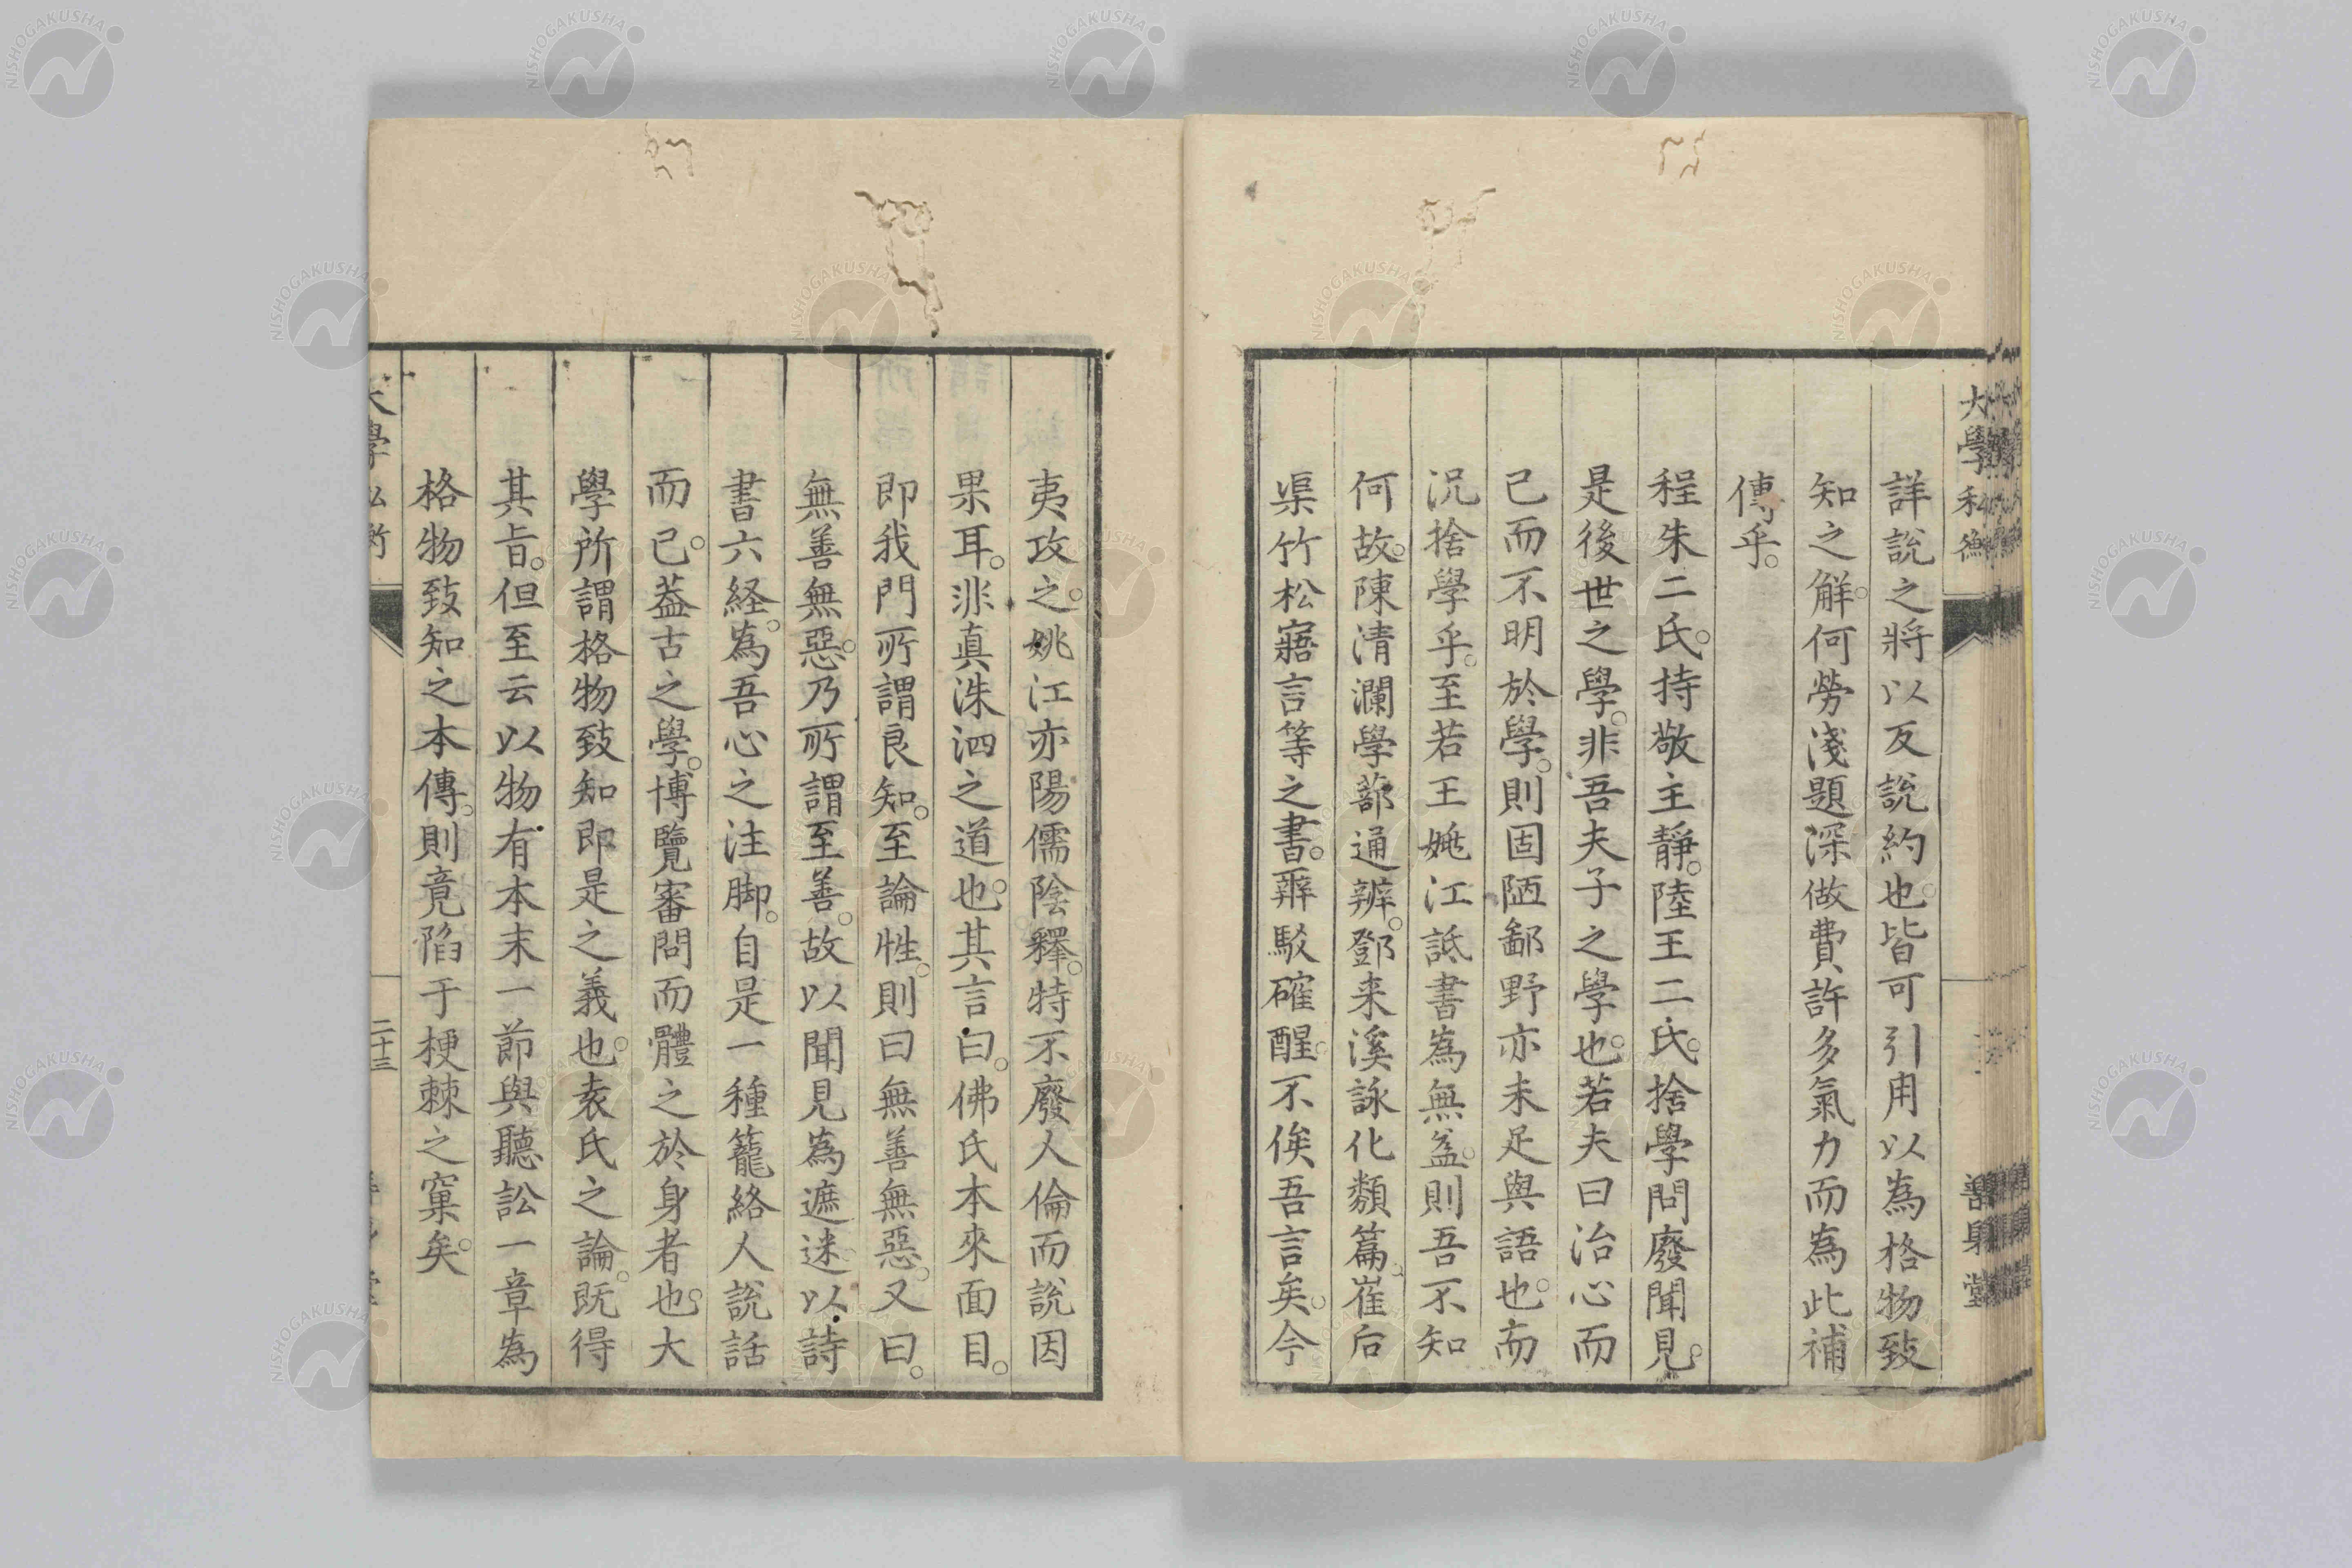 大學私衡
善身堂
詳說之將以反說約也。皆可引用以為格物致
知之解。何勞淺題深做費許多氣力而為此補
傳乎。
程朱二氏。持敬主靜。陸王二氏。捨學問廢聞見。
是後世之學。非吾夫子之學也。若夫曰治心而
已而不明於學。則固陋鄙野亦未足與語也。而
況捨學乎。至若王姚江詆書為無益。則吾不知
何故。陳清瀾學蔀通辨。鄧来溪詠化纇篇。崔后
渠竹松寤言等之書。辯駁確醒。不俟吾言矣。今
夷攻之。姚江亦陽儒陰釋。特不廢人倫而說因
果耳。非真洙泗之道也。其言曰。佛氏本來面目。
即我門所謂良知。至論性。則曰無善無惡。又曰。
無善無惡。乃所謂至善。故以聞見為遮迷以詩
書六経。為吾心之注脚。自是一種籠絡人說話
而已。蓋古之學。博覽審問而體之於身者也。大
學所謂格物致知即是之義也。袁氏之論。既得
其旨。但至云以物有本末一節與聽訟一章為
格物致知之本傳。則竟陷于梗棘之窠矣。
大學私衡
二十三
NISHOGAKUSHA